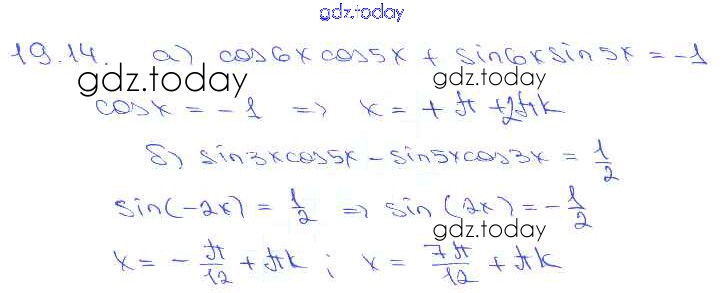 gdz.today
19.14. а) cos6x cos5x + sin6x sin5x = -1
gdz.today gdz.today
cosx = -1 => x = + π + 2πk
б) sin3x cos5x - sin5x cos3x = 1/2
sin(-2x) = 1/2 => sin(2x) = -1/2
gdz.today
x = - π/12 + πk ; x = 7π/12 + πk